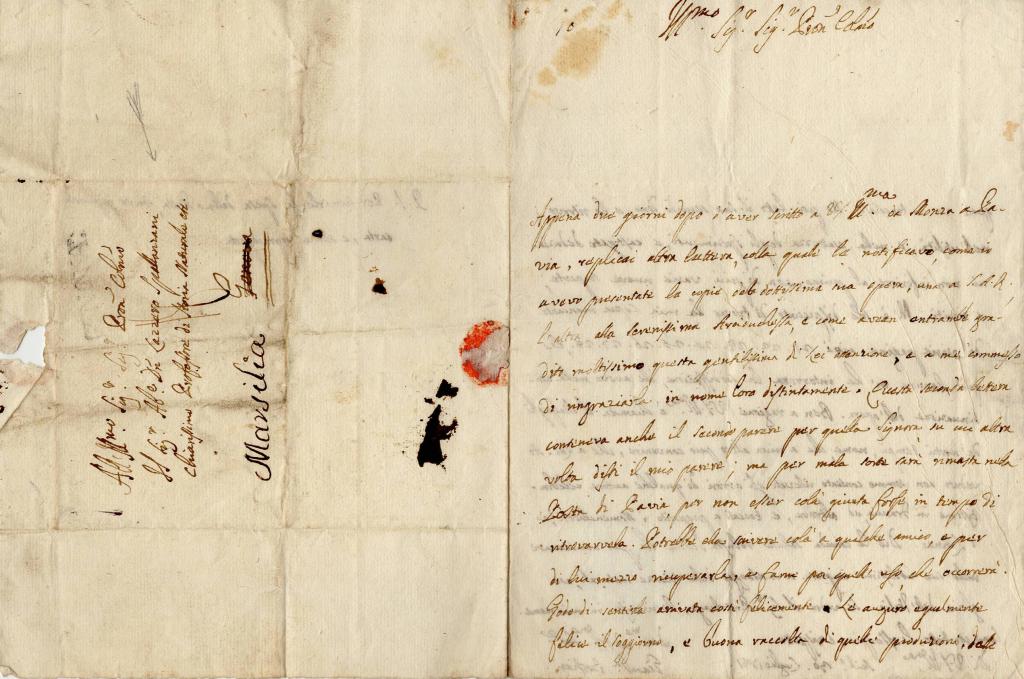 All' Illmo Sigr. Sigr. Pron Colmo
Il Sigr. Abe. Dn. Lazzaro Spallanzani
Chiarissimo Professore di Storia Naturale etc.
Genova
Marsilia
10
Illmo Sigr. Sigr. Pron Colmo
Appena due giorni dopo d'aver scritto a VS. Illma. da Monza a Pa-
via, replicai altra lettera, colla quale le notificavo, come io
avevo presentate le copie della dottissima sua opera, una a S.A.R.,
l'altra alla Serenissima Arciduchessa, e come avean entrambi gra-
dito moltissimo questa gentilissima di Lei attenzione, e a me commesso
di ringraziarla in nome loro distintamente. Questa seconda lettera
conteneva anche il secondo parere per quella Signora su cui altra
volta dissi il mio parere, ma per mala sorte sarà rimasta nella
Posta di Pavia, per non esser colà giunta forse in tempo di
ritrovarvela. Potrebbe ella scrivere colà a qualche amico, e per
di lui mezzo ricuperarla, e farne poi quell' uso, che occorrerà.
Godo di sentirla arrivata costì felicemente. Le auguro egualmente
felice il soggiorno, e buona raccolta di quelle produzioni, delle